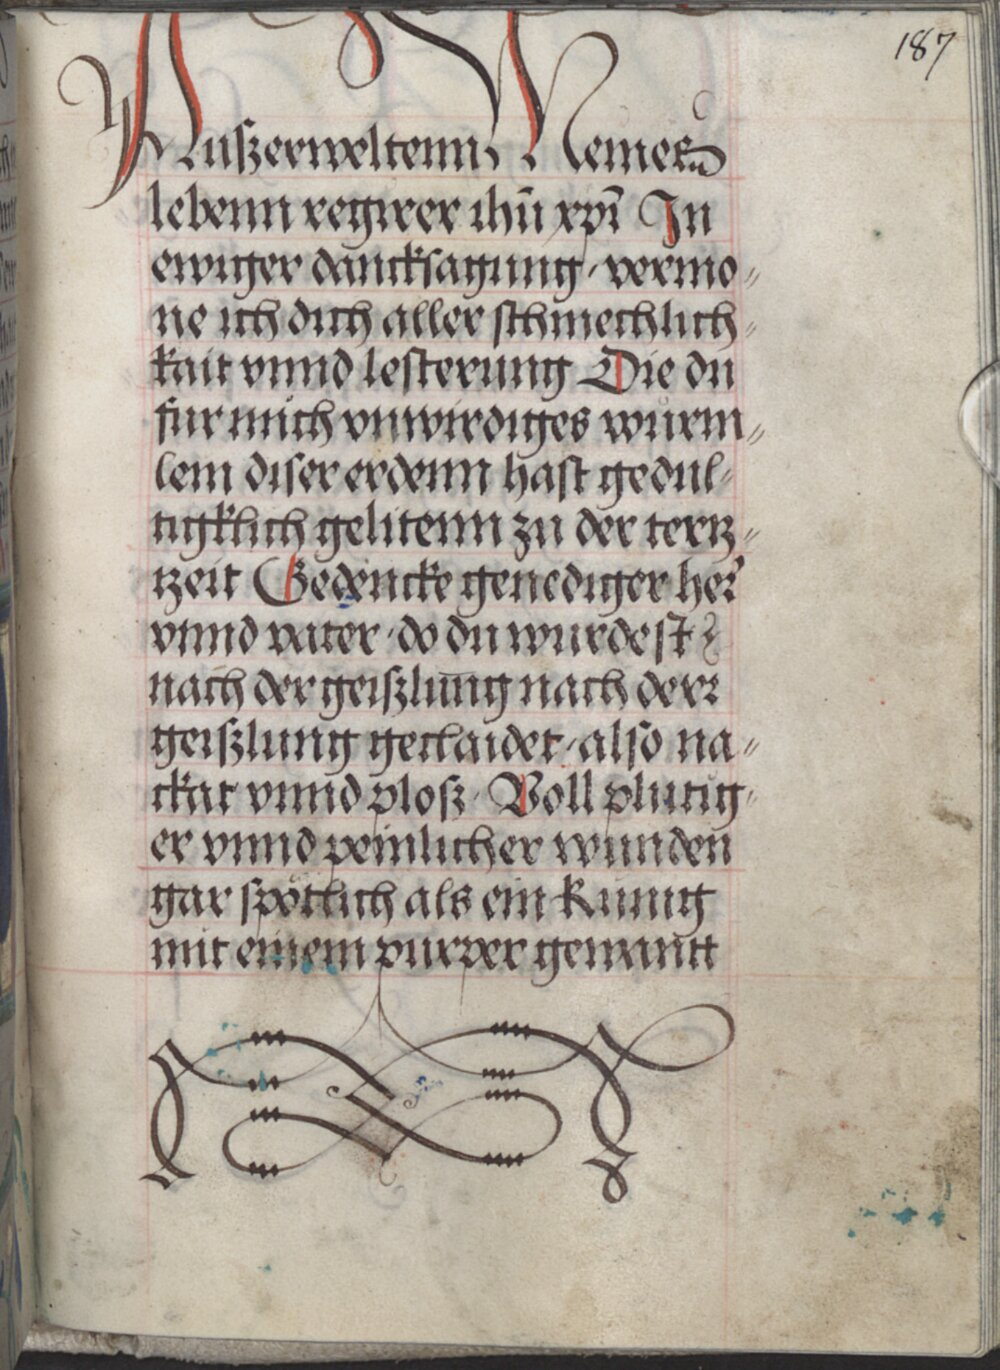 187
Außzerweltenn Nemer
lebenn regirer ihū xpī In
ewiger dancksagung · vermo〃
ne ich dich aller schmechlich〃
kait vnnd lesterung Die du
fur mich vnwirdiges wurm〃
lein diser erdenn hast gedul〃
tigklich gelitenn zu der tertz〃
tzeit Gedencke genediger her
vnnd vater · do du wurdest
nach der geißlung nach derr
geißlung geclaidet · also na〃
ckat vnnd ploß · Voll plutig〃
er vnnd peinlicher wunden
gar spötlich als ein kunig
mit einem purper gemantt